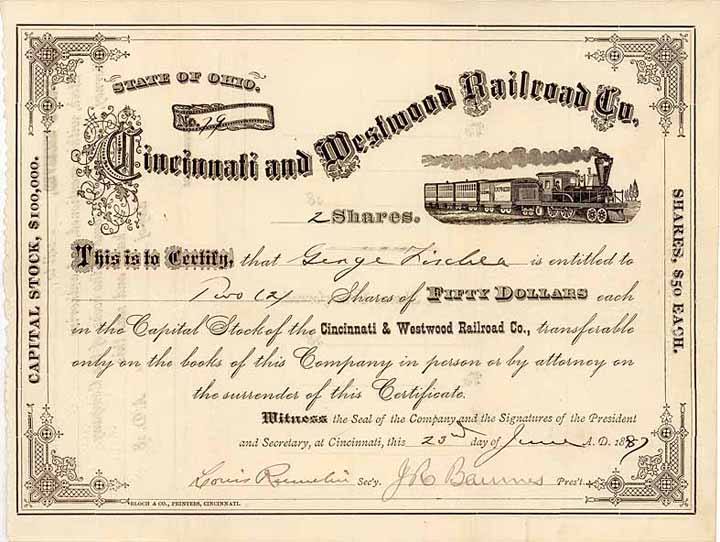 STATE OF OHIO.
No. 79
Cincinnati and Westwood Railroad Co.
2 Shares.
CAPITAL STOCK, $100,000.
SHARES, $50 EACH.
This is to Certify, that George Fischer is entitled to
Two (2) Shares of FIFTY DOLLARS each
in the Capital Stock of the Cincinnati & Westwood Railroad Co., transferable
only on the books of this Company in person or by attorney on
the surrender of this Certificate.
Witness the Seal of the Company and the Signatures of the President
and Secretary, at Cincinnati, this 23rd day of June A. D. 1887
Louis Sec'y. Pres't.
BLOCH & CO., PRINTERS, CINCINNATI.